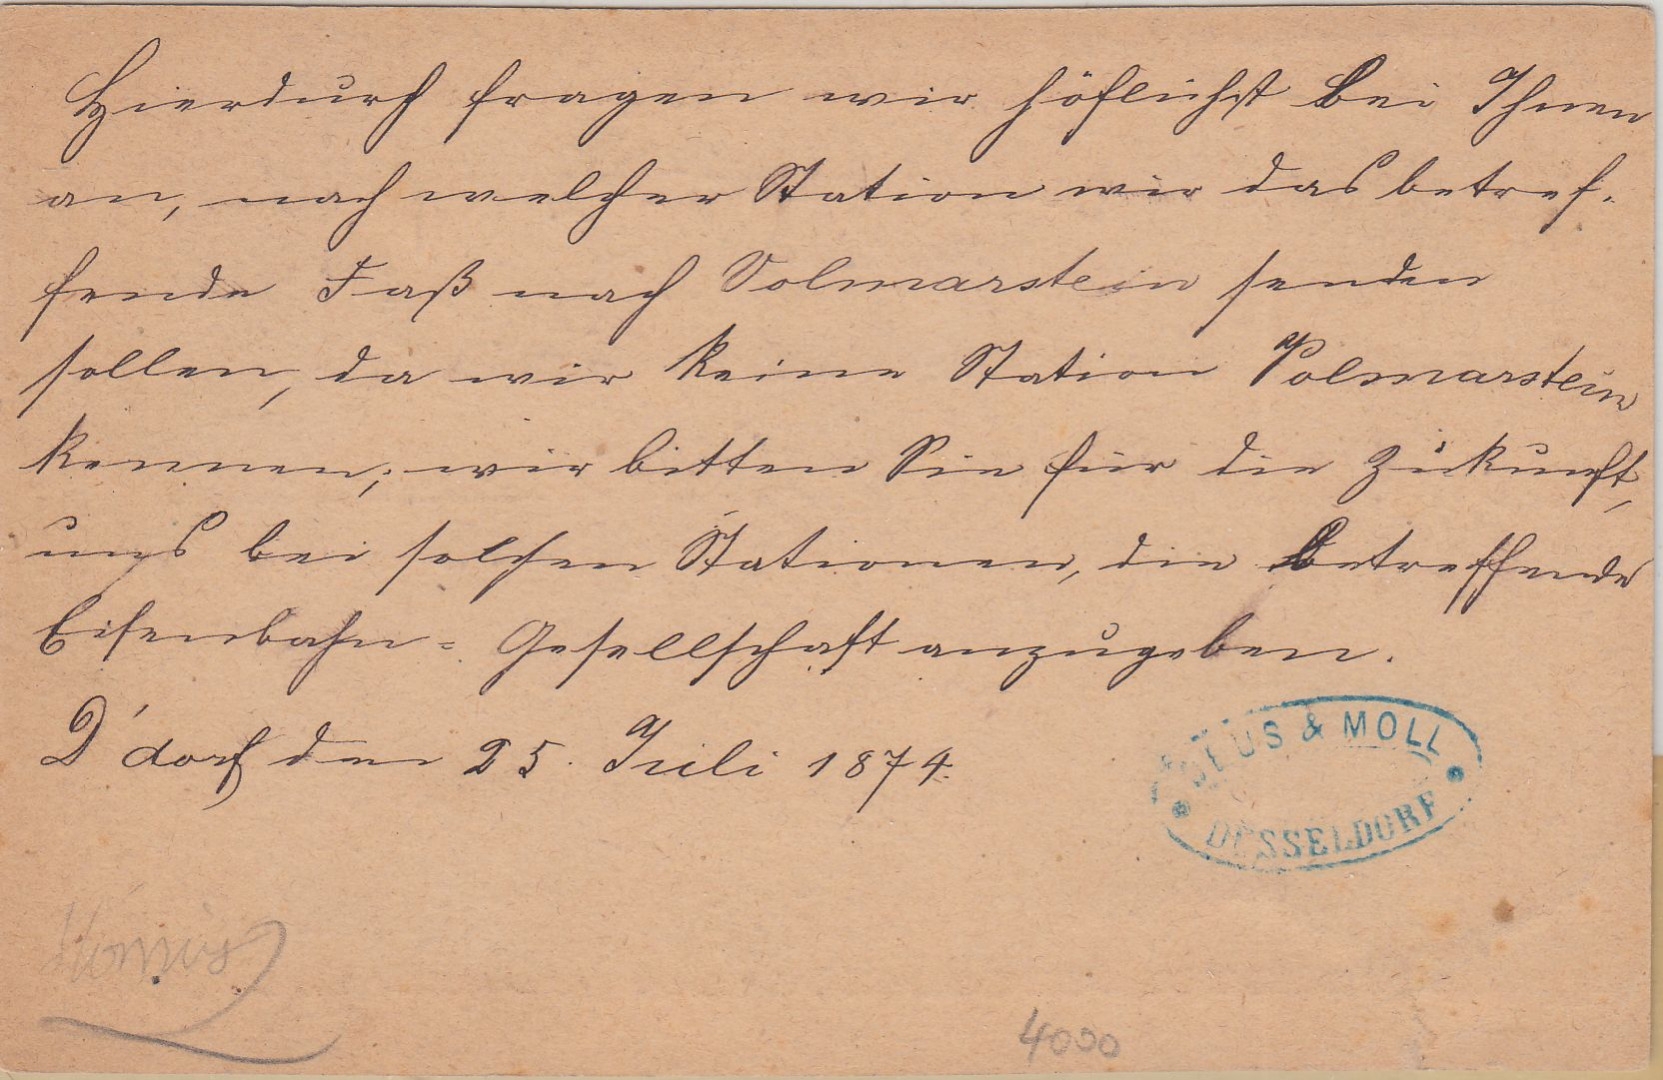 Hierdurch fragen wir höflichst bei Ihnen
an, nach welcher Station wir das betref-
fende Faß nach Volmarstein senden
sollen, da wir keine Station Volmarstein
kennen; wir bitten Sie für die Zukunft,
uns bei solchen Stationen, die betreffende
Eisenbahn= Gesellschaft anzugeben.
D'dorf den 25. Juli 1874.
& MOLL
DÜSSELDORF
4000